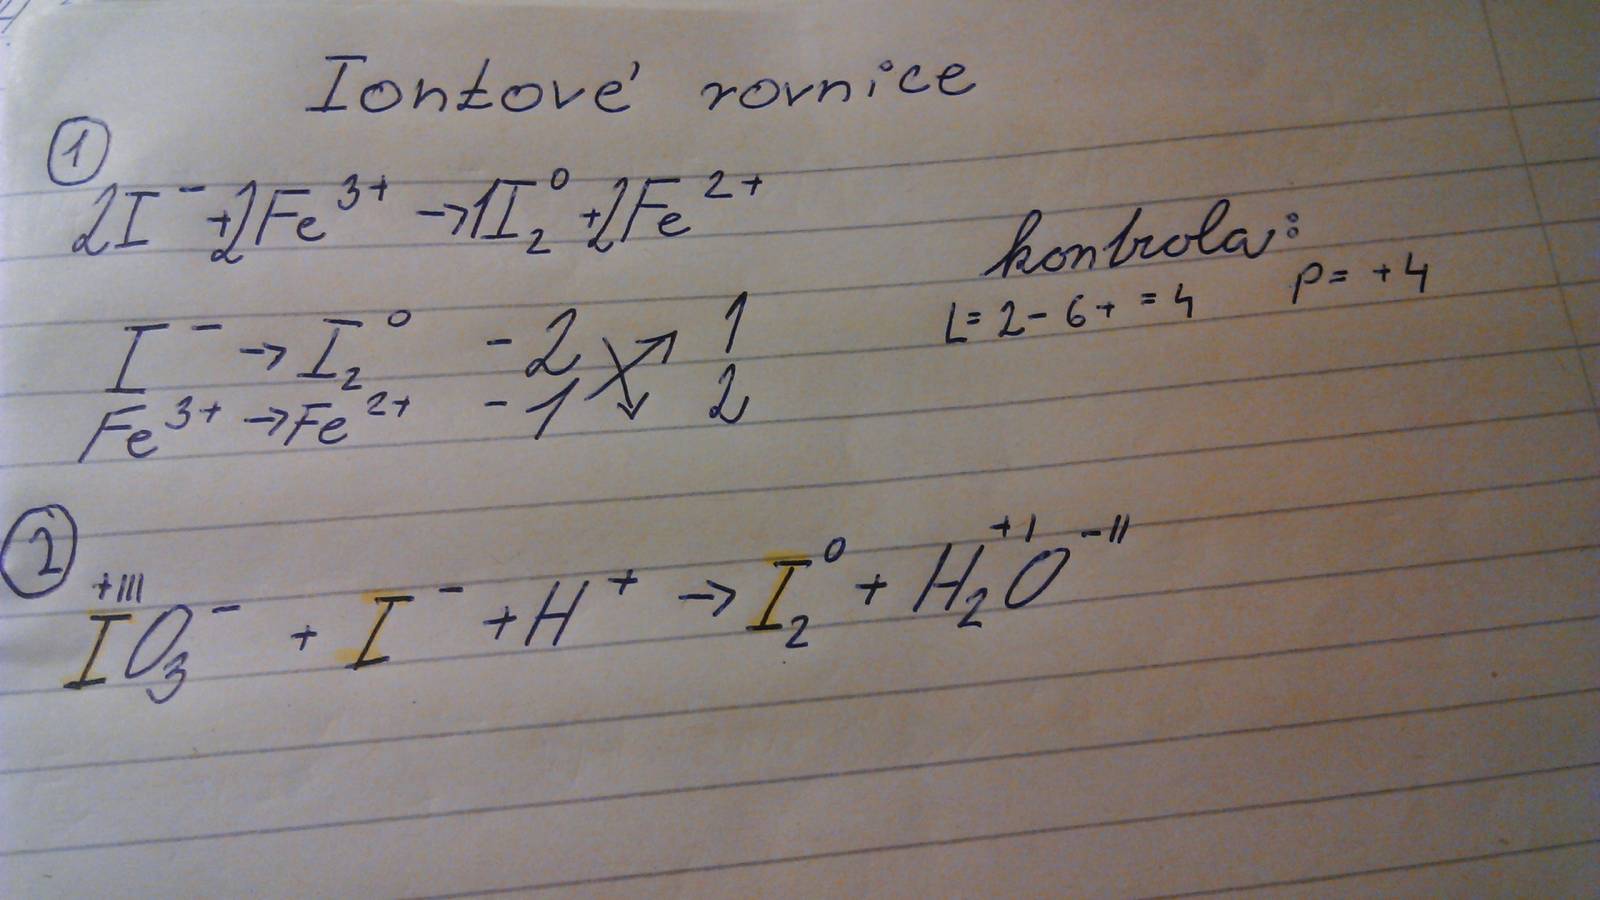 Iontové rovnice
①
2I⁻ + 2Fe³⁺ → 1I₂⁰ + 2Fe²⁺
kontrola:
L= 2- 6+ = 4 P= +4
I⁻ → I₂⁰ -2 1
Fe³⁺ → Fe²⁺ -1 2
②
+III +I -II
IO₃⁻ + I⁻ + H⁺ → I₂⁰ + H₂O